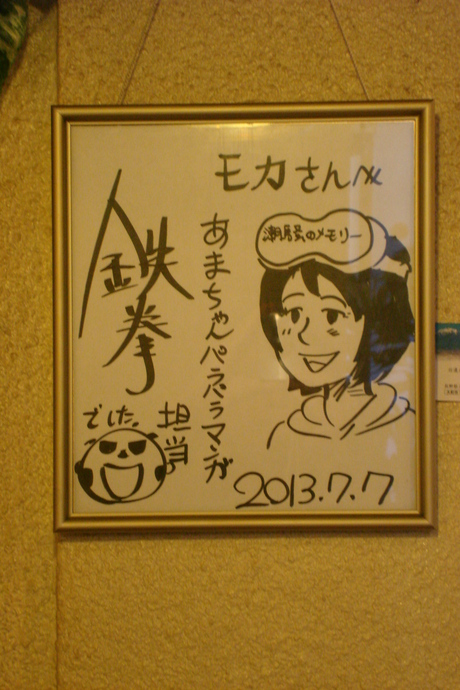 モカさんへ
潮騒のメモリー
あまちゃんパラパラマンガ
担当
でした。
鉄拳
2013.7.7